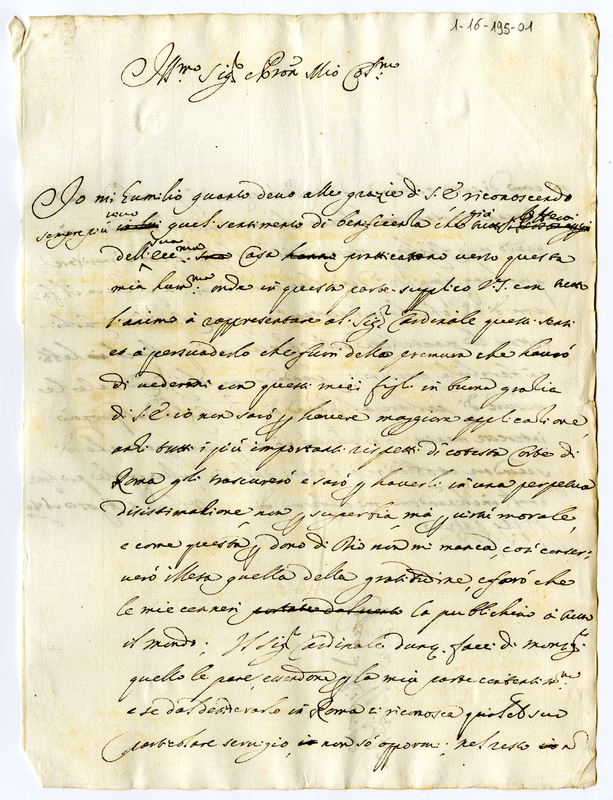 1-16-195-01
Ill.mo Sig.r Pron Mio Col.mo
Io mi humilio quanto devo alle grazie di S. E. riconoscendo
sempre più quel sentimento di beneficenza che già
dell'Ecc.ma sua Casa praticato verso questa
mia onde in questa parte supplico V.S. con tutto
l'animo à rappresentare al Sig.r Cardinale questi senti
et à persuaderlo che fuori della premura che haverò
di vedermi con questi miei figli in buona grazia
di S. E. io non sarò p havere maggiore applicazione,
anzi tutti i più importanti rispetti di cotesta Corte di
Roma gli trascurerò e sarò p haverli in una perpetua
disistimazione non p superbia, mà p virtù morale,
e come questa p dono di Dio non mi manca, così conser:
verò illesa quella della gratitudine, e farò che
le mie ceneri portate dal vento la publichino à tutto
il mondo; Il Sig.r Cardinale dunq. facci di mons.r
quello le pare essendone p la mia parte contentiss.mo
e se dal desiderarlo in Roma ci riconosca qualche suo
particolare servizio, non sò oppormi; nel resto